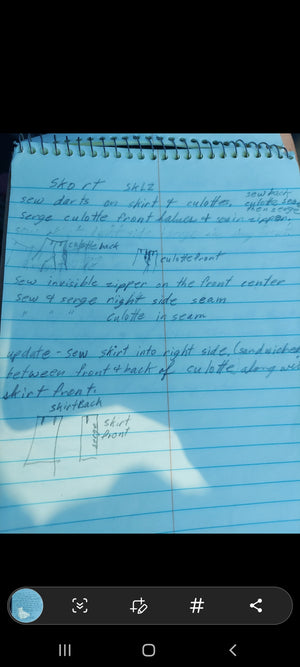 Skort SKLZ
sew back
sew darts on skirt & culottes. culotte seam
then serge
serge culotte front halves & zipper.
culotte back
culotte front
Sew invisible zipper on the front center
sew & serge right side seam
" " " culotte in seam
update - sew skirt into right side, (sandwiched
between front & back of culotte along with
skirt front.
skirt Back
serge
skirt
front